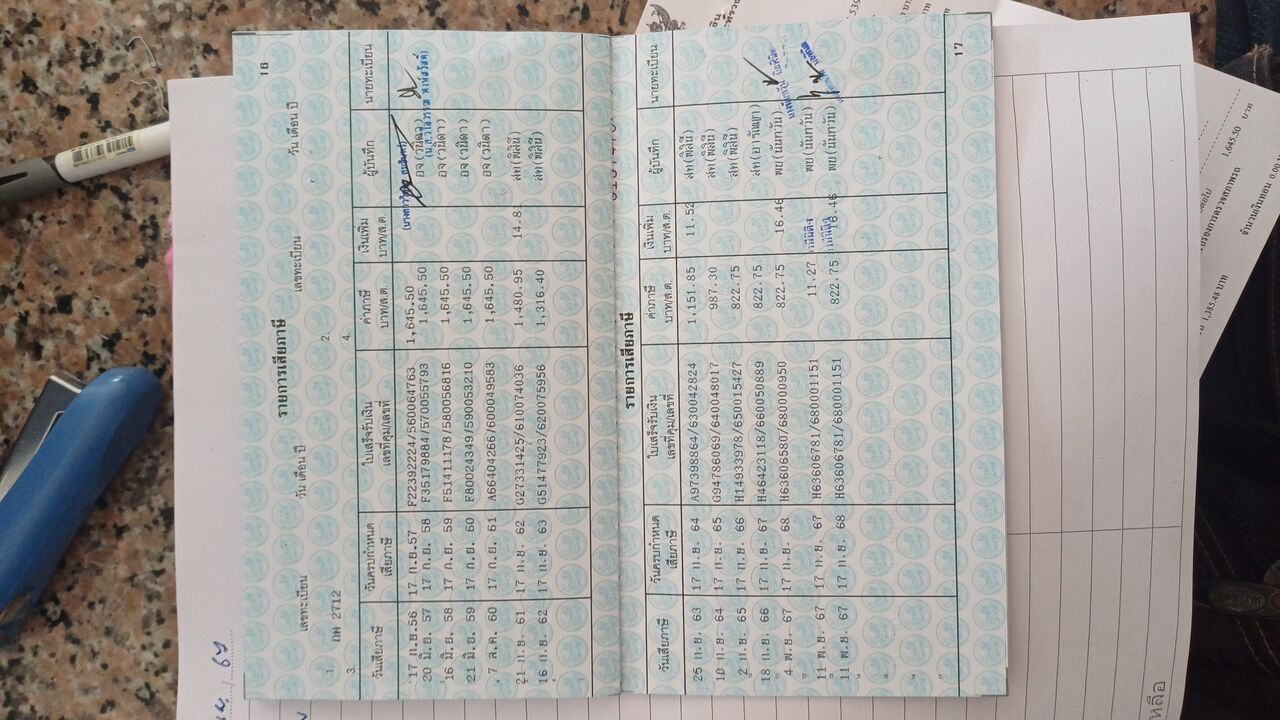 18
รายการเสียภาษี
เลขทะเบียน วัน เดือน ปี เลขทะเบียน วัน เดือน ปี
1. กค 2712 2.
3. 4.
วันเสียภาษี วันครบกำหนดเสียภาษี ใบเสร็จรับเงิน เลขที่คุม/เลขที่ ค่าภาษี บาท/ส.ต. เงินเพิ่ม บาท/ส.ต. ผู้บันทึก นายทะเบียน
17 ก.ย.56 17 ก.ย.57 F22392224/560064763 1,645.50
20 มิ.ย. 57 17 ก.ย. 58 F35179884/570055793 1,645.50 อจ(วนิดา)
16 มิ.ย. 58 17 ก.ย. 59 F51411178/580056816 1,645.50 อจ(วนิดา)
21 มิ.ย. 59 17 ก.ย. 60 F80024349/590053210 1,645.50 อจ(วนิดา)
7 ส.ค. 60 17 ก.ย. 61 A66404266/600049583 1,645.50 อจ(วนิดา)
21 ก.ย. 61 17 ก.ย. 62 G27331425/610074036 1,480.95 14.81 สค(พิสินี)
16 ก.ย. 62 17 ก.ย. 63 G51477923/620075956 1,316.40 สค(พิสินี)
รายการเสียภาษี
วันเสียภาษี วันครบกำหนดเสียภาษี ใบเสร็จรับเงิน เลขที่คุม/เลขที่ ค่าภาษี บาท/ส.ต. เงินเพิ่ม บาท/ส.ต. ผู้บันทึก นายทะเบียน
25 ก.ย. 63 17 ก.ย. 64 A97398864/630042824 1,151.85 11.52 สค(พิสินี)
10 ก.ย. 64 17 ก.ย. 65 G94786069/640048017 987.30 สค(พิสินี)
2 ก.ย. 65 17 ก.ย. 66 H14933978/650015427 822.75 สค(พิสินี)
18 ก.ย. 66 17 ก.ย. 67 H46423118/660059889 822.75
4 พ.ย. 67 17 ก.ย. 68 H63608580/680000950 822.75 16.46 พย(นันทวัน)
11 พ.ย. 67 17 ก.ย. 67 H63606781/680001151 11.27 พย(นันทวัน)
11 พ.ย. 67 17 ก.ย. 68 H63606781/680001151 822.75 16.46 พย(นันทวัน)
17
1,645.50 บาท
จำนวนเงินทอน 0.00
1,385.48 บาท